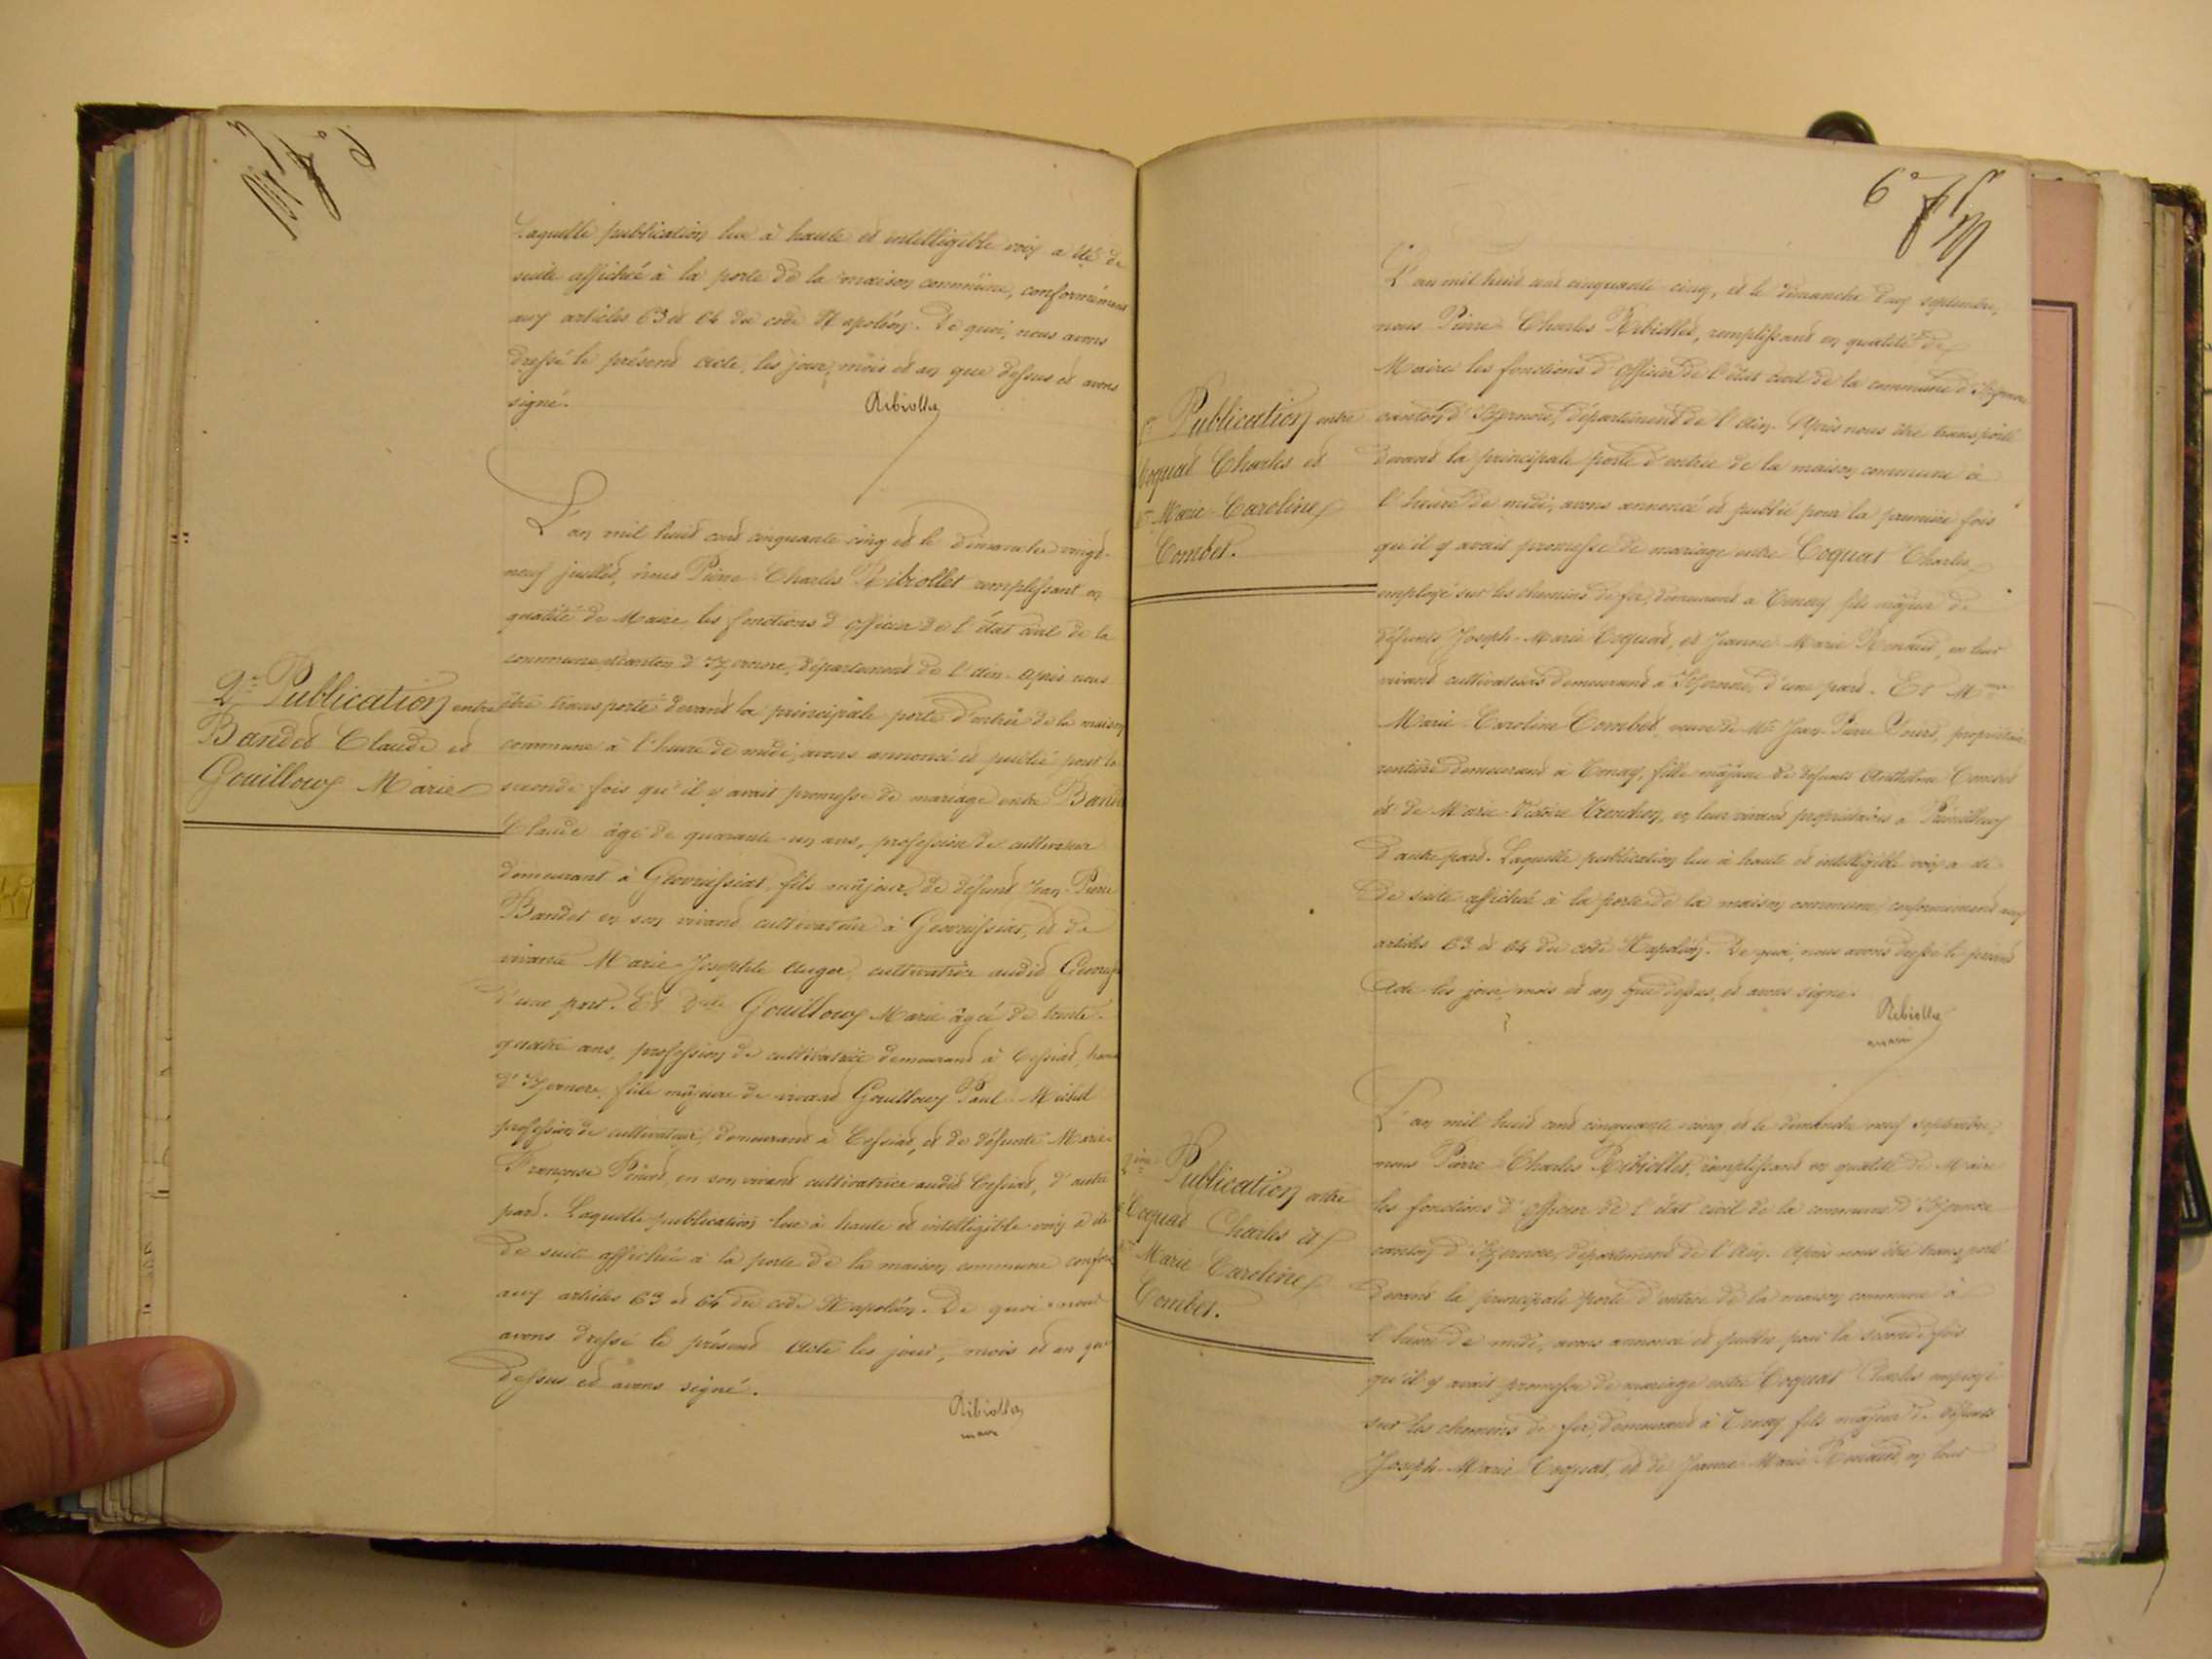 Laquelle publication lue à haute et intelligible voix a été de
suite affichée à la porte de la maison commune, conformément
aux articles 63 et 64 du code Napoléon. De quoi, nous avons
dressé le présent acte, les jour, mois et an que dessus et avons
signé.
Ribiollet
2e Publication entre
Bandet Claude et
Gouilloux Marie
L'an mil huit cent cinquante cinq et le dimanche vingt-
neuf juillet, nous Pierre Charles Ribiollet remplissant en
qualité de Maire, les fonctions d'officier de l'état civil de la
commune et canton d'Izernore, département de l'Ain. Après nous
être transporté devant la principale porte d'entrée de la maison
commune à l'heure de midi, avons annoncé et publié pour la
seconde fois qu'il y avait promesse de mariage entre Bandet
Claude âgé de quarante-un ans, profession de cultivateur
demeurant à Geovreissiat, fils majeur de défunt Jean-Pierre
Bandet en son vivant cultivateur à Geovreissiat, et de
vivante Marie-Josephte Auger, cultivatrice audit
d'une part. Et Dlle Gouilloux Marie âgée de trente-
quatre ans, profession de cultivatrice demeurant à Cessiat,
d'Izernore, fille majeure de vivant Gouilloux Paul-Michel
profession de cultivateur, demeurant à Cessiat, et de défunte Marie
Françoise en son vivant cultivatrice audit Cessiat, d'autre
part. Laquelle publication lue à haute et intelligible voix a été
de suite affichée à la porte de la maison commune
aux articles 63 et 64 du code Napoléon. De quoi nous
avons dressé le présent acte les jour, mois et an que
dessus et avons signé.
Ribiollet
maire
6e
Publication entre
Coquat Charles et
Marie-Caroline
Combet.
L'an mil huit cent cinquante-cinq, et le dimanche deux septembre,
nous Pierre Charles Ribiollet, remplissant en qualité de
Maire les fonctions d'officier de l'état civil de la commune d'Izernore
canton d'Izernore, département de l'Ain. Après nous être transporté
devant la principale porte d'entrée de la maison commune à
l'heure de midi, avons annoncé et publié pour la première fois
qu'il y avait promesse de mariage entre Coquat Charles,
employé sur les chemins de fer, demeurant à Tenay fils majeur de
défunts Joseph-Marie Coquat, et Jeanne-Marie Renaud, en leur
vivant cultivateurs demeurant à Izernore, d'une part. Et Mme
Marie-Caroline Combet, veuve de Mr Jean-Pierre propriétaire
rentière demeurant à Tenay, fille majeure de défunts Anthelme Combet
et de Marie-Victoire en leur vivant propriétaires à
d'autre part. Laquelle publication lue à haute et intelligible voix a été
de suite affichée à la porte de la maison commune conformément aux
articles 63 et 64 du code Napoléon. De quoi, nous avons dressé le présent
Acte les jour, mois et an que dessus, et avons signé.
Ribiollet
maire
2ième Publication entre
Coquat Charles et
Marie Caroline
Combet.
L'an mil huit cent cinquante-cinq et le dimanche neuf septembre,
nous Pierre-Charles Ribiollet, remplissant en qualité de Maire
les fonctions d'officier de l'état civil de la commune d'Izernore
canton d'Izernore, département de l'Ain. Après nous être transporté
devant la principale porte d'entrée de la maison commune à
l'heure de midi, avons annoncé et publié pour la seconde fois
qu'il y avait promesse de mariage entre Coquat Charles employé
sur les chemins de fer, demeurant à Tenay fils majeur de défunts
Joseph-Marie Coquat, et de Jeanne-Marie Renaud, en leur